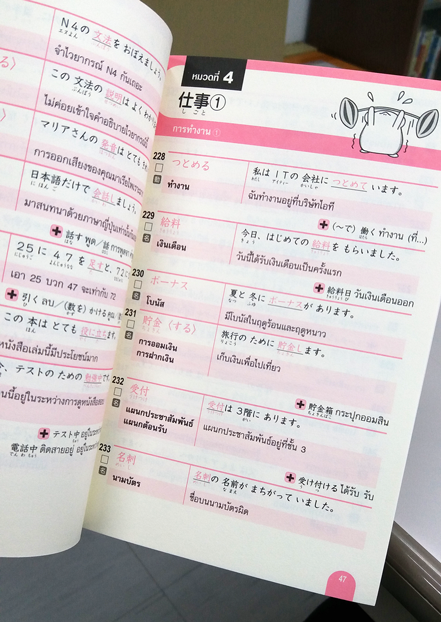 N4の 文法を おぼえましょう。
จำไวยากรณ์ N4 กันเถอะ
この 文法の 説明は よく わか
ไม่ค่อยเข้าใจคำอธิบายไวยากรณ์นี้
マリアさんの 発音は とても
การออกเสียงของคุณมาเรียไพเราะ
日本語だけで 会話しましょう。
มาสนทนาด้วยภาษาญี่ปุ่น
話す พูด
25に 47を 足すと、72
เอา 25 บวก 47 จะเท่ากับ 72
引く ลบ
この 本は とても 役に立ちます。
หนังสือเล่มนี้มีประโยชน์มาก
テストの ための 勉強中です。
テスト中
電話中 ติดสายอยู่
หมวดที่ 4
仕事①
しごと
การทำงาน ①
228
つとめる
ทำงาน
私は ITの 会社に つとめて います。
ฉันทำงานอยู่ที่บริษัทไอที
(〜で) 働く ทำงาน (ที่...)
229
名
給料
เงินเดือน
今日、はじめての 給料を もらいました。
วันนี้ได้รับเงินเดือนเป็นครั้งแรก
給料日 วันเงินเดือนออก
230
名
ボーナス
โบนัส
夏と 冬に ボーナスが あります。
มีโบนัสในฤดูร้อนและฤดูหนาว
231
名
貯金〈する〉
การออมเงิน
การฝากเงิน
旅行の ために 貯金します。
เก็บเงินเพื่อไปเที่ยว
貯金箱 กระปุกออมสิน
232
名
受付
แผนกประชาสัมพันธ์
แผนกต้อนรับ
受付は 3階に あります。
แผนกประชาสัมพันธ์อยู่ที่ชั้น 3
受け付ける ได้รับ รับ
233
名
名刺
นามบัตร
名刺の 名前が まちがって いました。
ชื่อบนนามบัตรผิด
47